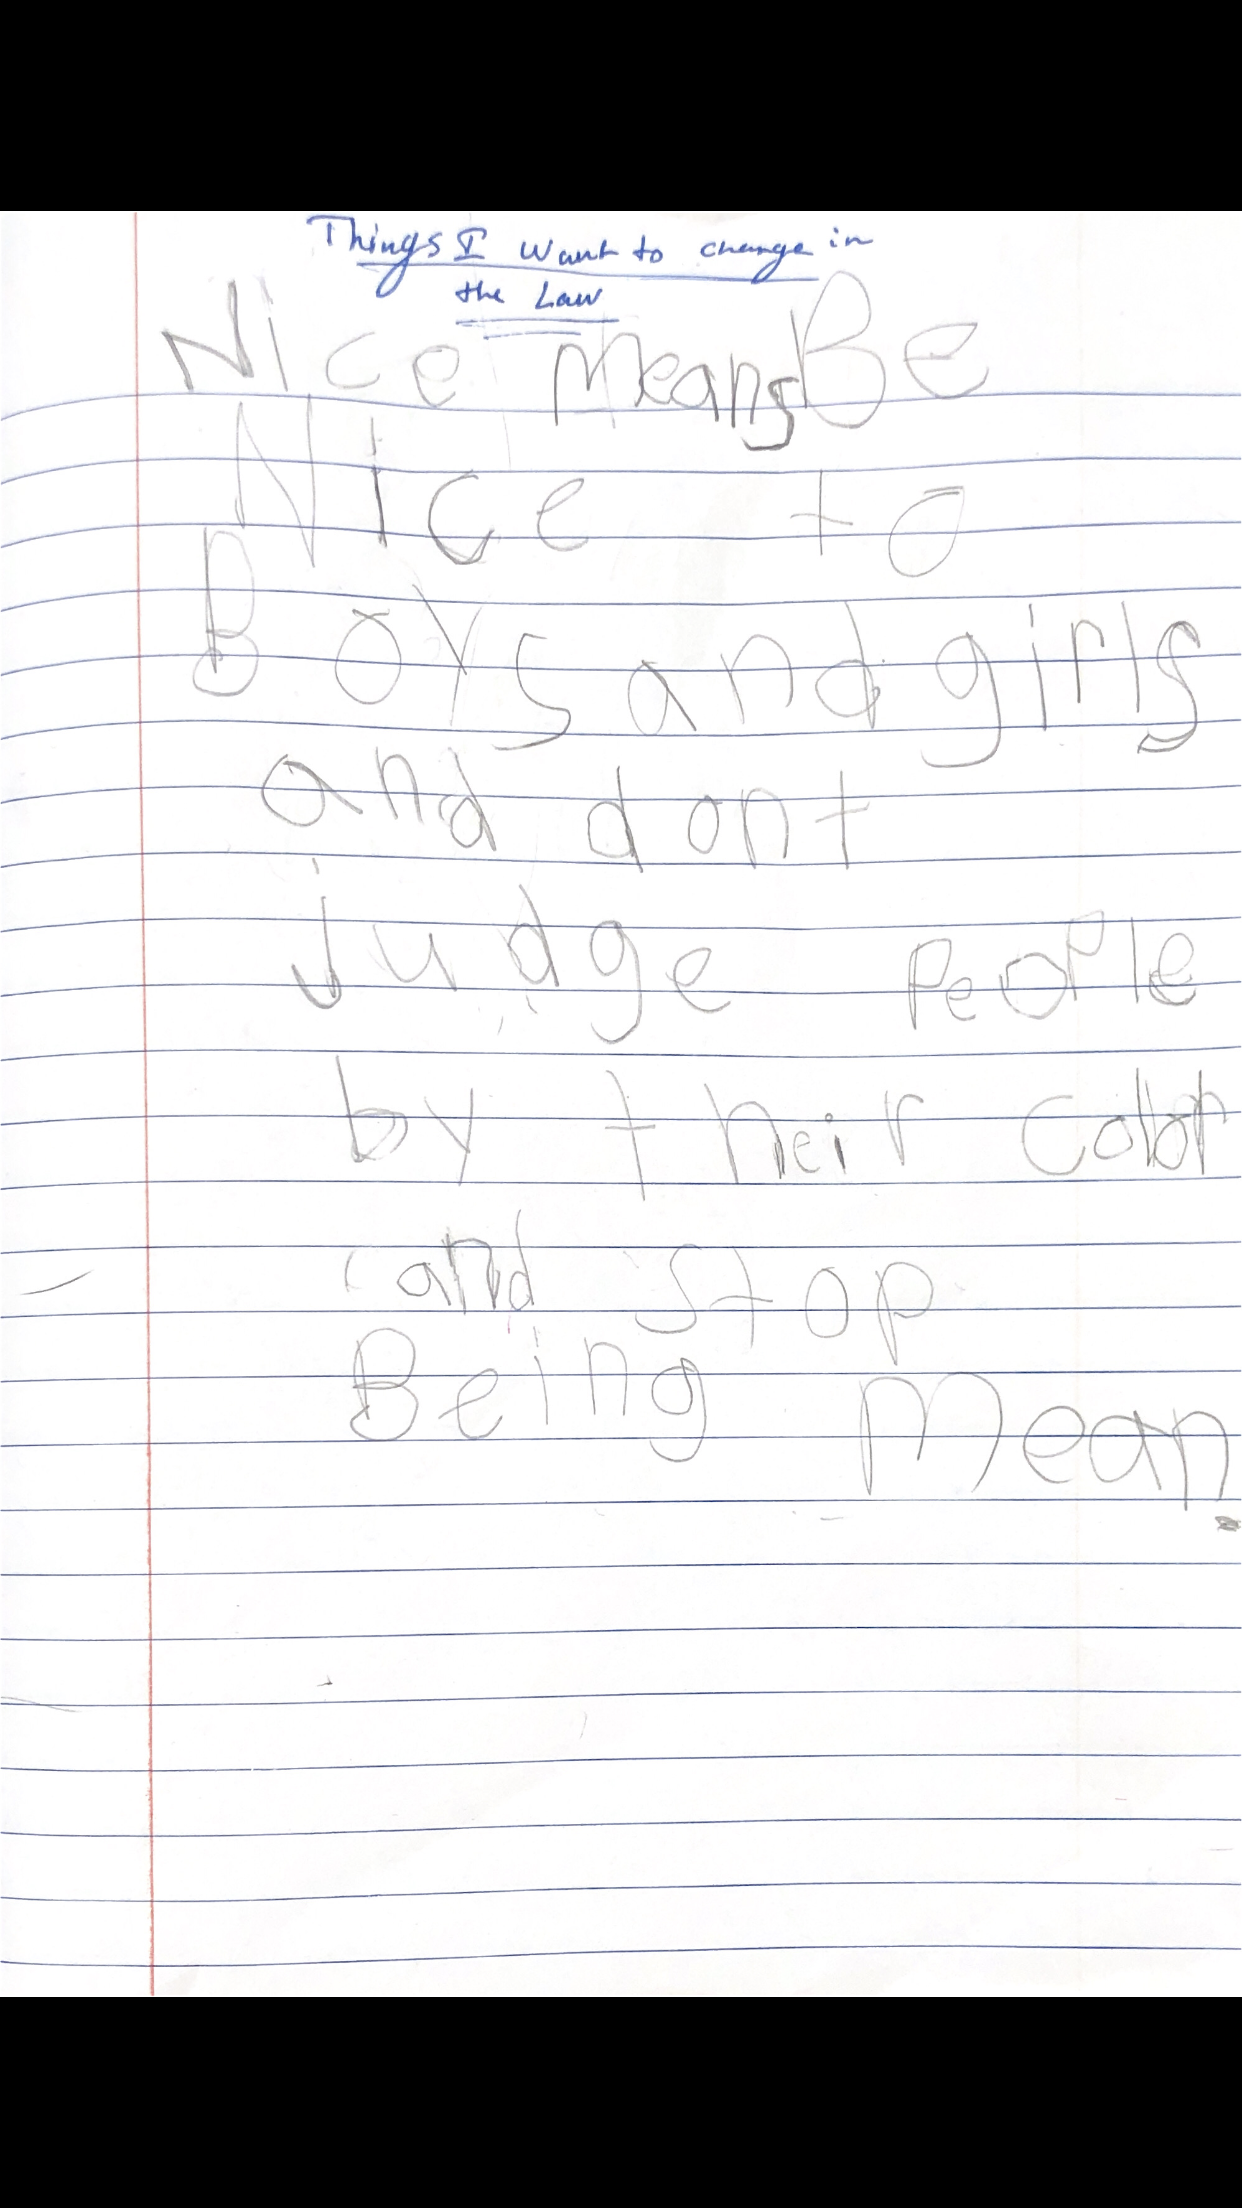 Things I want to change in
the Law
Nice MeansBe
Nice to
Boys and girls
and dont
judge PeoPle
by their color
and stop
Being Mean.